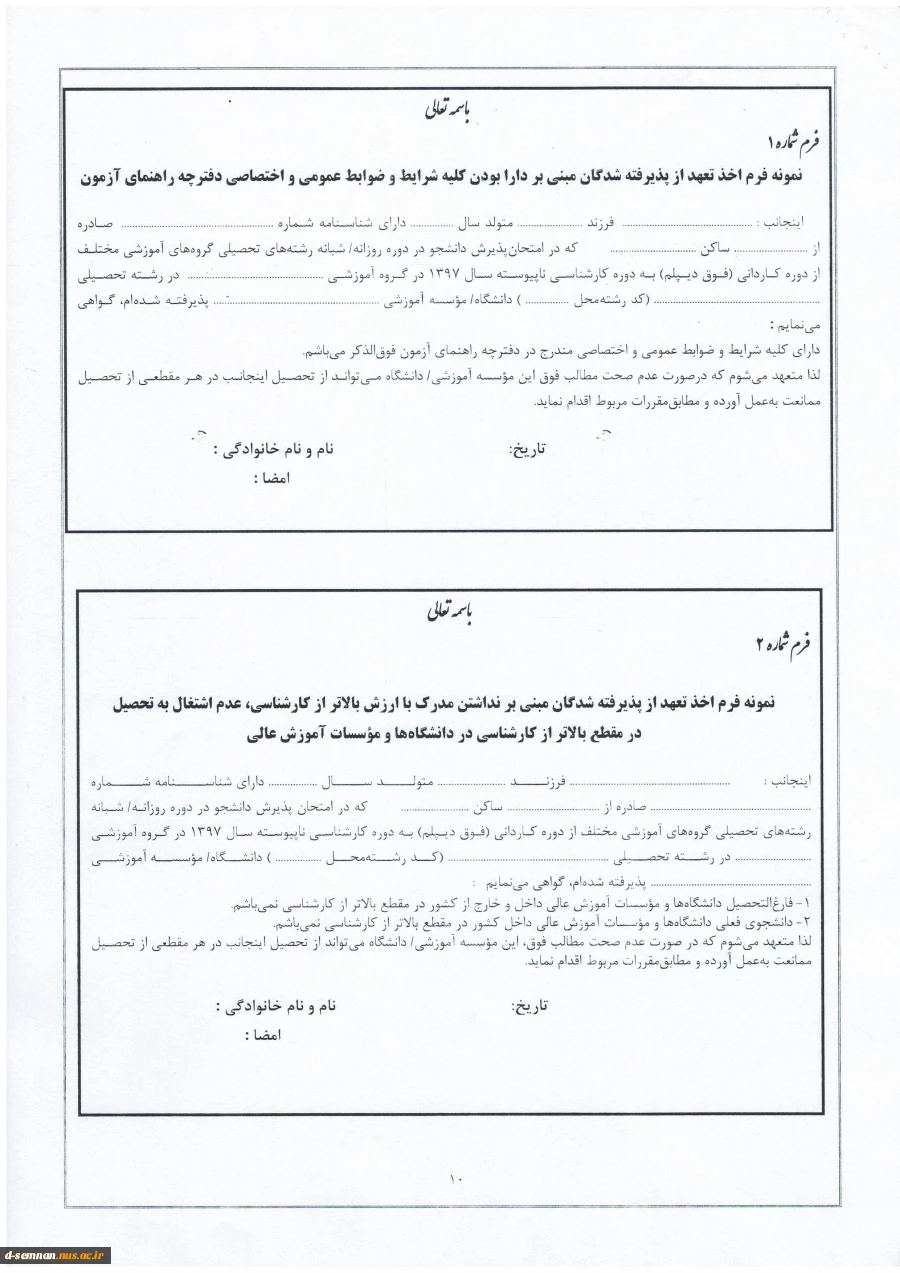 باسمه تعالی
فرم شماره ۱
نمونه فرم اخذ تعهد از پذیرفته شدگان مبنی بر دارا بودن کلیه شرایط و ضوابط عمومی و اختصاصی دفترچه راهنمای آزمون
اینجانب : ........................................ فرزند .................... متولد سال ............. دارای شناسنامه شماره ............................................ صادره
از ...................... ساکن ......................... که در امتحان‌پذیرش دانشجو در دوره روزانه/ شبانه رشته‌های تحصیلی گروه‌های آموزشی مختلف
از دوره کاردانی (فوق دیپلم) به دوره کارشناسی ناپیوسته سال ۱۳۹۷ در گروه آموزشی ........................................ در رشته تحصیلی
................................................ (کد رشته‌محل ............. ) دانشگاه/ مؤسسه آموزشی ................................................ پذیرفته شده‌ام، گواهی
می‌نمایم :
دارای کلیه شرایط و ضوابط عمومی و اختصاصی مندرج در دفترچه راهنمای آزمون فوق‌الذکر می‌باشم.
لذا متعهد می‌شوم که درصورت عدم صحت مطالب فوق این مؤسسه آموزشی/ دانشگاه می‌تواند از تحصیل اینجانب در هر مقطعی از تحصیل
ممانعت به‌عمل آورده و مطابق‌مقررات مربوط اقدام نماید.
تاریخ: نام و نام خانوادگی :
امضا :
باسمه تعالی
فرم شماره ۲
نمونه فرم اخذ تعهد از پذیرفته شدگان مبنی بر نداشتن مدرک با ارزش بالاتر از کارشناسی، عدم اشتغال به تحصیل
در مقطع بالاتر از کارشناسی در دانشگاه‌ها و مؤسسات آموزش عالی
اینجانب : ................................................ فرزند .................... متولد سال ............... دارای شناسنامه شماره
................................................ صادره از ............................ ساکن .................... که در امتحان پذیرش دانشجو در دوره روزانه/ شبانه
رشته‌های تحصیلی گروه‌های آموزشی مختلف از دوره کاردانی (فوق دیپلم) به دوره کارشناسی ناپیوسته سال ۱۳۹۷ در گروه آموزشی
........................ در رشته تحصیلی ................................................ (کد رشته‌محل .............. ) دانشگاه/ مؤسسه آموزشی
................................................ پذیرفته شده‌ام، گواهی می‌نمایم :
۱- فارغ‌التحصیل دانشگاه‌ها و مؤسسات آموزش عالی داخل و خارج از کشور در مقطع بالاتر از کارشناسی نمی‌باشم.
۲- دانشجوی فعلی دانشگاه‌ها و مؤسسات آموزش عالی داخل کشور در مقطع بالاتر از کارشناسی نمی‌باشم.
لذا متعهد می‌شوم که در صورت عدم صحت مطالب فوق، این مؤسسه آموزشی/ دانشگاه می‌تواند از تحصیل اینجانب در هر مقطعی از تحصیل
ممانعت به‌عمل آورده و مطابق‌مقررات مربوط اقدام نماید.
تاریخ: نام و نام خانوادگی :
امضا :
۱۰
d-semnan.nus.ac.ir